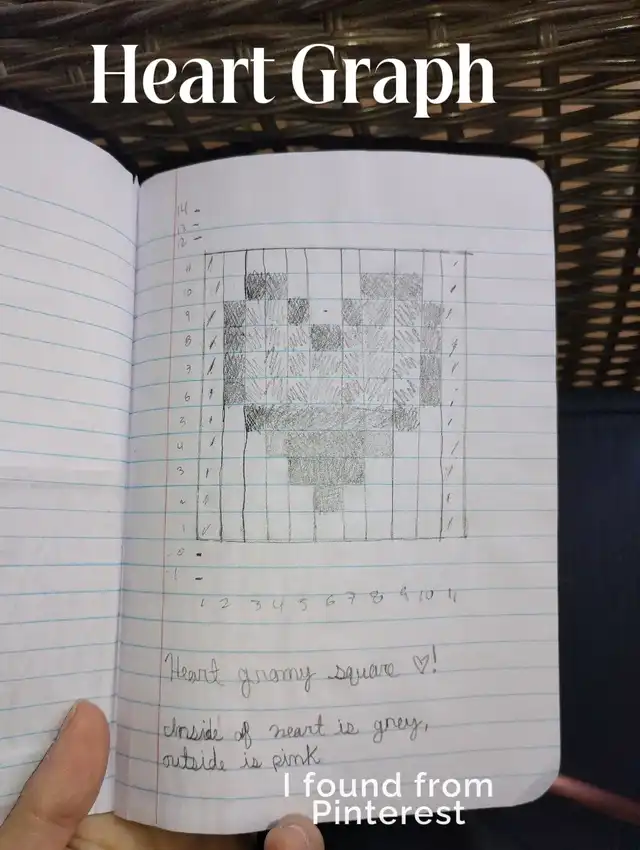 Heart Graph
14 -
13 -
12 -
11
10
9
8
7
6
5
4
3
2
1
-0 -
-1 -
1 2 3 4 5 6 7 8 9 10 11
Heart granny square ♡!
Inside of heart is grey,
outside is pink
I found from
Pinterest